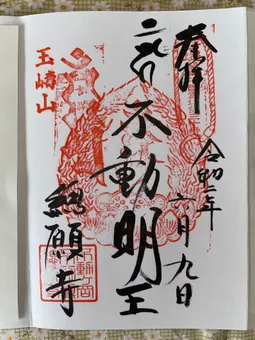 奉拝
令和二年
六月九日
不動明王
玉崎山
總願寺